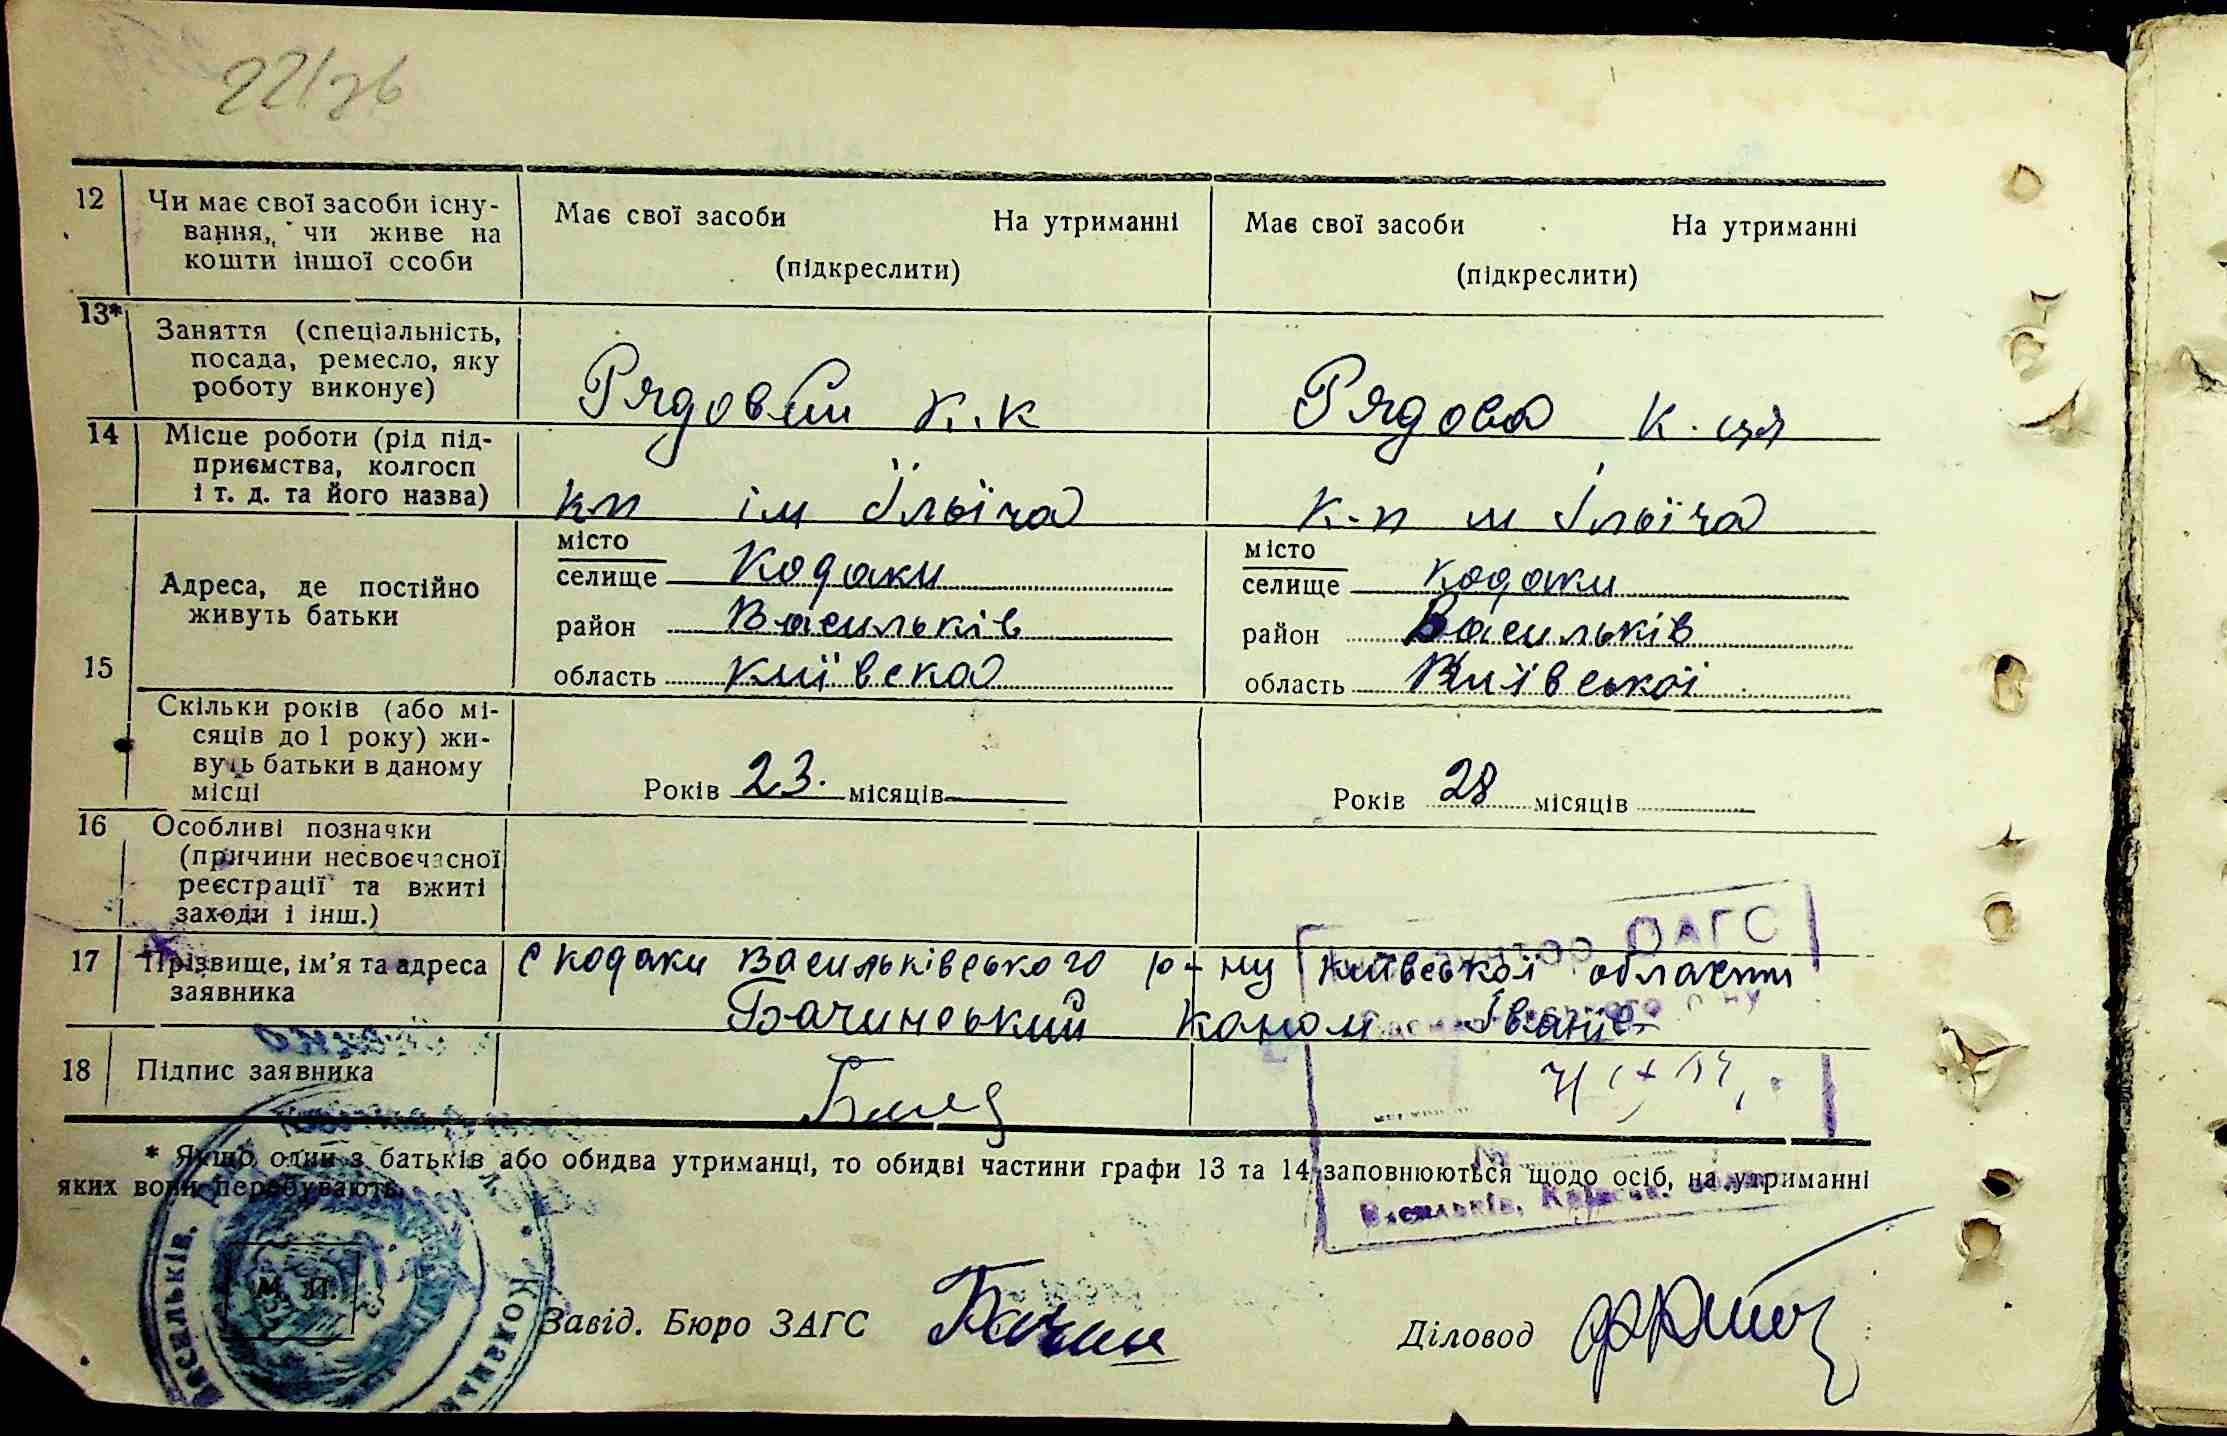 12 Чи має свої засоби існу-
вання, чи живе на
кошти іншої особи
Має свої засоби На утриманні
(підкреслити)
Має свої засоби На утриманні
(підкреслити)
13* Заняття (спеціальність,
посада, ремесло, яку
роботу виконує)
Рядовий к.к
Рядова к.ця
14 Місце роботи (рід під-
приємства, колгосп
і т. д. та його назва)
кп ім Ільїча
к-п Ільїча
15 Адреса, де постійно
живуть батьки
місто
селище Кодаки
район Васильків
область Київська
місто
селище Кодаки
район Васильків
область Київської
Скільки років (або мі-
сяців до 1 року) жи-
вуть батьки в даному
місці
Років 23. місяців
Років 28 місяців
16 Особливі позначки
(причини несвоєчасної
реєстрації та вжиті
заходи і інш.)
17 Прізвище, ім'я та адреса
заявника
с кодаки Васильківського р-ну Київської области
Бачинський
18 Підпис заявника
ЗАГС
Васильків, Київськ.
* Якщо один з батьків або обидва утриманці, то обидві частини графи 13 та 14 заповнюються щодо осіб, на утриманні
яких вони перебувають.
М. П.
Васильків.
Завід. Бюро ЗАГС
Діловод